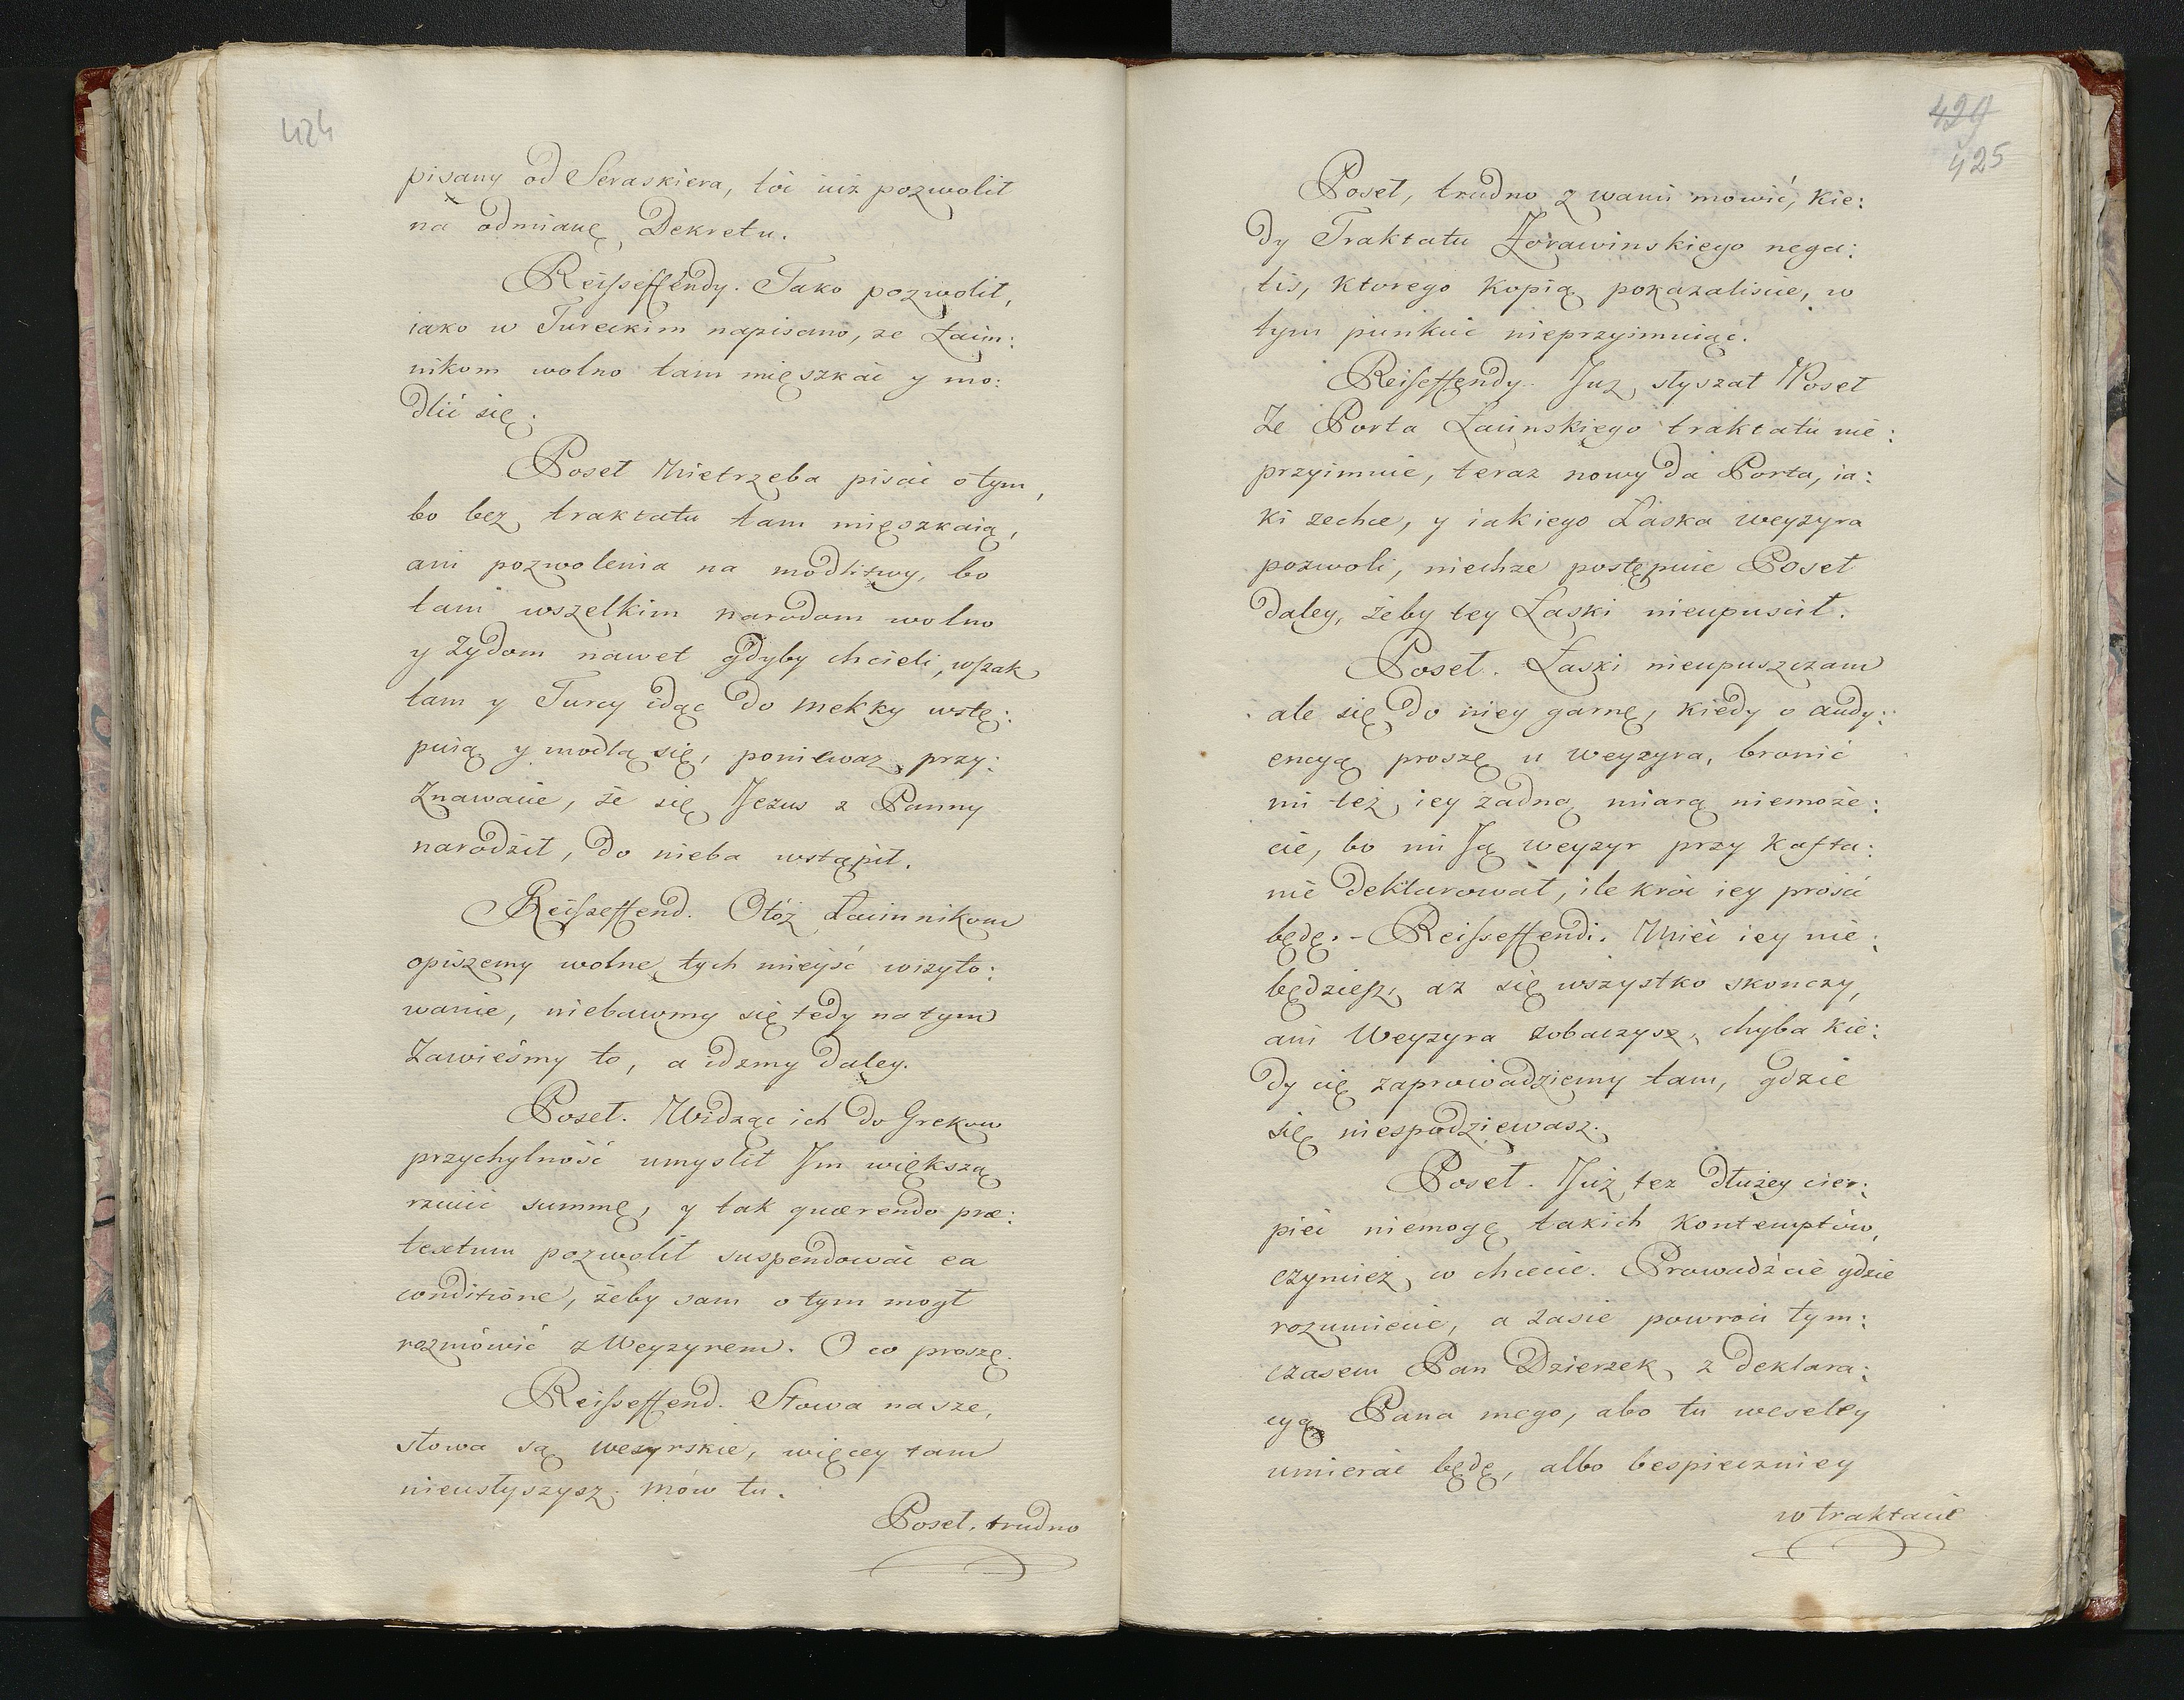 424
pisany od Seraskiera, toć iuż pozwolił
na odmianę Dekretu.
Reisseffendy. Tako pozwolił,
iako w Tureckim napisano, ze Łaciń:
nikom wolno tam mięszkać y mo:
dlić się.
Poseł Nietrzeba pisać o tym,
bo bez traktatu tam mięszkaią,
ani pozwolenia na modlitwy, bo
tam wszelkim narodom wolno
y Zydom nawet gdyby chcieli, wszak
tam y Turcy idąc do Mekky wstę:
puią y modlą się, poniewaz przy:
znawacie, że się Jezus z Panny
narodził, do nieba wstąpił.
Reisseffend. Otóż Łacinnikom
opiszemy wolne tych mieysć wizyto:
wanie, niebawmy się tedy na tym
Zawieśmy to, a idzmy daley.
Poseł. Widząc ich do Grekow
przychylność umyslił Jm większą
rzucić summę, y tak quærendo præ:
textum pozwolił suspendować ea
conditione, żeby sam o tym mogł
rozmówić z Weyzyrem. O co proszę.
Reisseffend. Słowa nasze,
słowa są wezyrskie, więcey tam
nieusłyszysz mów tu.
Poseł, trudno
429
425
Poseł, trudno z wami mowić, kie:
dy Traktatu Żorawinskiego nega:
tis, ktorego kopią pokazaliscie, w
tym punkcie nieprzyimuiąc.
Reiseffendy. Juz słyszał Poseł
Że Porta Łacinskiego traktatu nie:
przyimuie, teraz nowy da Porta, ia:
ki zechce, y iakiego Łaska weyzyra
pozwoli, niechze postępuie Poseł
daley, żeby tey Łaski nieupuscił.
Poseł. Łaski nieupuszczam
ale się do niey garnę, kiedy o audy:
encyą proszę u weyzyra, bronić
mi też iey żadną miarą niemoże:
cie, bo mi Ją weyzyr przy kafta:
nie deklarował, ile kroć iey prosić
będę. - Reisseffendi. Mieć iey nie:
będziesz, aż się wszystko skonczy,
ani Weyzyra zobaczysz, chyba kie:
dy cię zaprowadziemy tam, gdzie
się niespodziewasz.
Poseł. Już tez dłużey cier:
pieć niemogę takich kontemptów,
czyńcież, co chcecie. Prowadźcie gdzie
rozumiecie, a zasie powroci tym:
czasem Pan Dzierzek z deklara:
cyą Pana mego, abo tu weseley
umierać będę, albo bespieczniey
w traktacie